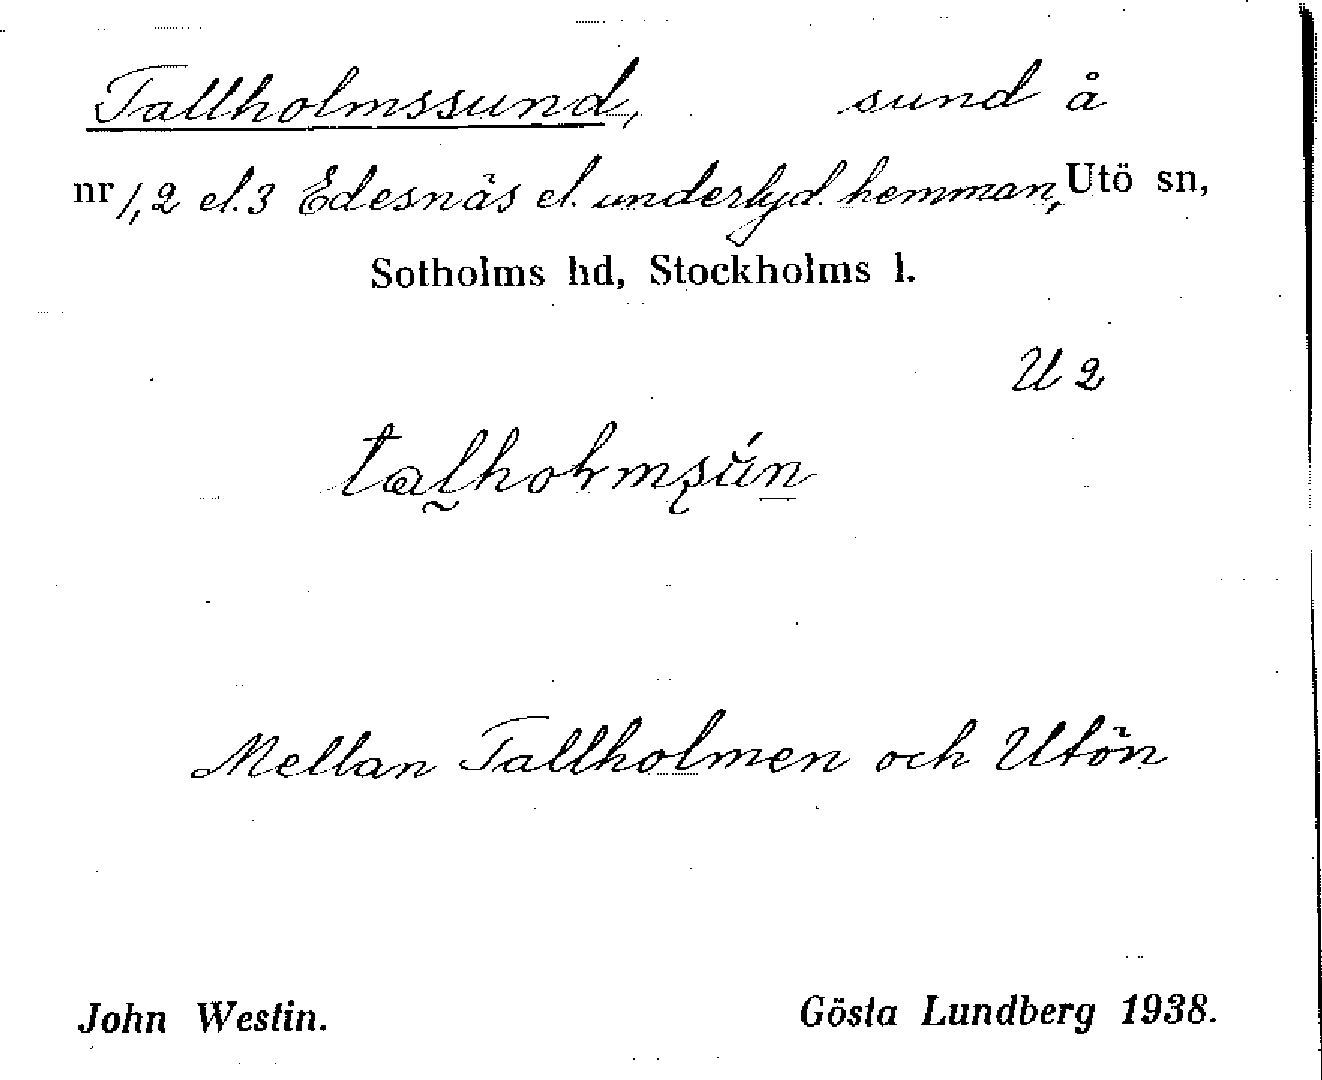 Tallholmssund, sund å
nr 1, 2 el. 3 Edesnäs el. underlyd. hemman, Utö sn,
Sotholms hd, Stockholms l.
U 2
Mellan Tallholmen och Utön
John Westin. Gösta Lundberg 1938.